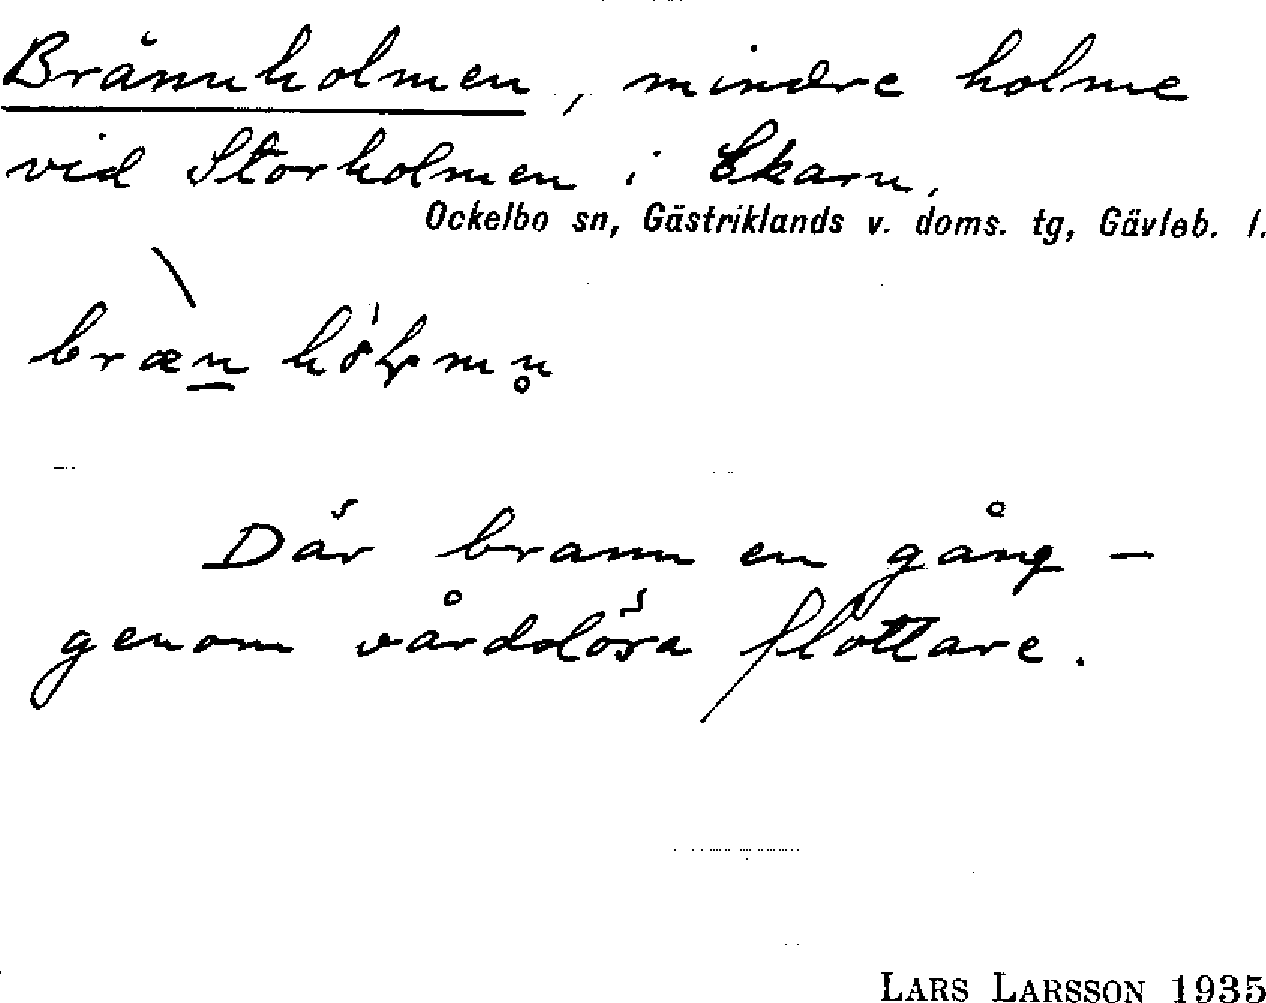 Brännholmen, mindre holme
vid Storholmen i Ekarn,
Ockelbo sn, Gästriklands v. doms. tg, Gävleb. l.
Där brann en gång –
genom vårdslösa flottare.
LARS LARSSON 1935